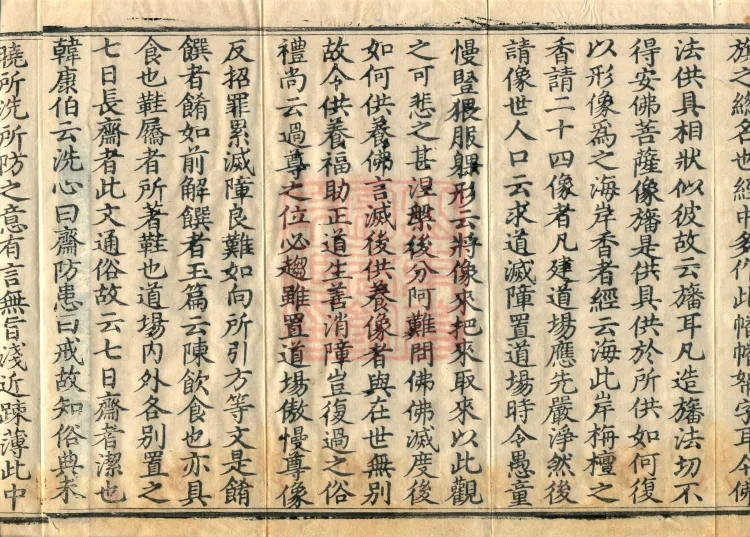 旛之總名世經中多作此幡幡
法供具相狀似彼故云旛耳凡造旛法切不
得安佛菩薩像旛是供具供於所供如何復
以形像爲之海岸香者經云海此岸栴檀之
香請二十四像者凡建道場應先嚴淨然後
請像世人口云求道滅障置道場時令愚童
慢豎猥服躶形云將像來把來取來以此觀
之可悲之甚涅槃後分阿難問佛佛滅度後
如何供養佛言滅後供養像者與在世無別
故今供養福助正道生善消障豈復過之俗
禮尚云過尊之位必趨雖置道場傲慢尊像
反招罪累滅障良難如向所引方等文是餚
饌者餚如前解饌者玉篇云陳飲食也亦具
食也鞋屩者所著鞋也道場內外各別置之
七日長齋者此文通俗故云七日齋者潔也
韓康伯云洗心曰齋防患曰戒故知俗典未
曉所洗所防之意有言無旨淺近踈薄此中